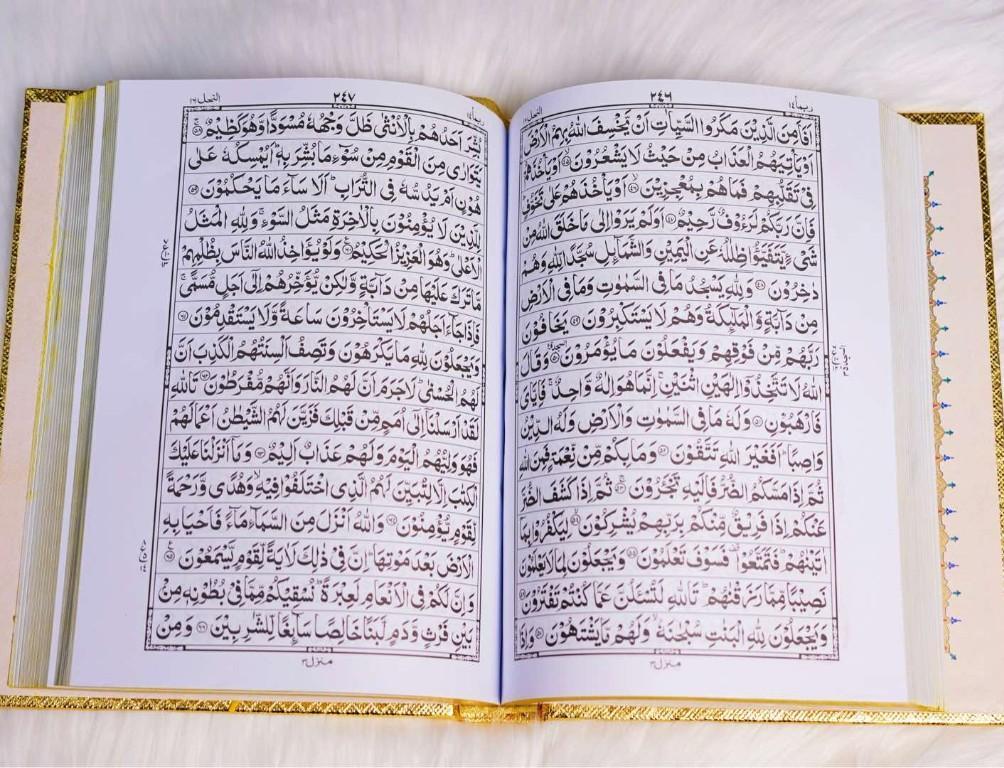 ربما ١٤
٢٤٦
النحل ١٦
اَفَاَمِنَ الَّذِيْنَ مَكَرُوا السَّيِّاٰتِ اَنْ يَّخْسِفَ اللّٰهُ بِهِمُ الْاَرْضَ
اَوْ يَاْتِيَهُمُ الْعَذَابُ مِنْ حَيْثُ لَا يَشْعُرُوْنَ ۙ﴿٤٥﴾ اَوْ يَاْخُذَهُمْ
فِيْ تَقَلُّبِهِمْ فَمَا هُمْ بِمُعْجِزِيْنَ ۙ﴿٤٦﴾ اَوْ يَاْخُذَهُمْ عَلٰى تَخَوُّفٍ ؕ
فَاِنَّ رَبَّكُمْ لَرَءُوْفٌ رَّحِيْمٌ ﴿٤٧﴾ اَوَلَمْ يَرَوْا اِلٰى مَا خَلَقَ اللّٰهُ مِنْ
شَيْءٍ يَّتَفَيَّؤُا ظِلٰلُهٗ عَنِ الْيَمِيْنِ وَالشَّمَآئِلِ سُجَّدًا لِّلّٰهِ وَهُمْ
دٰخِرُوْنَ ﴿٤٨﴾ وَلِلّٰهِ يَسْجُدُ مَا فِي السَّمٰوٰتِ وَمَا فِي الْاَرْضِ
مِنْ دَآبَّةٍ وَّالْمَلٰٓئِكَةُ وَهُمْ لَا يَسْتَكْبِرُوْنَ ﴿٤٩﴾ يَخَافُوْنَ
رَبَّهُمْ مِّنْ فَوْقِهِمْ وَيَفْعَلُوْنَ مَا يُؤْمَرُوْنَ ﴿٥٠﴾ وَقَالَ
اللّٰهُ لَا تَتَّخِذُوْٓا اِلٰهَيْنِ اثْنَيْنِ ۚ اِنَّمَا هُوَ اِلٰهٌ وَّاحِدٌ ۚ فَاِيَّايَ
فَارْهَبُوْنِ ﴿٥١﴾ وَلَهٗ مَا فِي السَّمٰوٰتِ وَالْاَرْضِ وَلَهُ الدِّيْنُ
وَاصِبًا ؕ اَفَغَيْرَ اللّٰهِ تَتَّقُوْنَ ﴿٥٢﴾ وَمَا بِكُمْ مِّنْ نِّعْمَةٍ فَمِنَ اللّٰهِ
ثُمَّ اِذَا مَسَّكُمُ الضُّرُّ فَاِلَيْهِ تَجْـَٔرُوْنَ ﴿٥٣﴾ ثُمَّ اِذَا كَشَفَ الضُّرَّ
عَنْكُمْ اِذَا فَرِيْقٌ مِّنْكُمْ بِرَبِّهِمْ يُشْرِكُوْنَ ﴿٥٤﴾ لِيَكْفُرُوْا بِمَآ
اٰتَيْنٰهُمْ ؕ فَتَمَتَّعُوْا ۟ فَسَوْفَ تَعْلَمُوْنَ ﴿٥٥﴾ وَيَجْعَلُوْنَ لِمَا لَا يَعْلَمُوْنَ
نَصِيْبًا مِّمَّا رَزَقْنٰهُمْ ؕ تَاللّٰهِ لَتُسْـَٔلُنَّ عَمَّا كُنْتُمْ تَفْتَرُوْنَ ﴿٥٦﴾
وَيَجْعَلُوْنَ لِلّٰهِ الْبَنٰتِ سُبْحٰنَهٗ ۙ وَلَهُمْ مَّا يَشْتَهُوْنَ ﴿٥٧﴾ وَاِذَا
منزل ٣
ربما ١٤
٢٤٧
النحل ١٦
بُشِّرَ اَحَدُهُمْ بِالْاُنْثٰى ظَلَّ وَجْهُهٗ مُسْوَدًّا وَّهُوَ كَظِيْمٌ ۚ﴿٥٨﴾
يَتَوَارٰى مِنَ الْقَوْمِ مِنْ سُوْٓءِ مَا بُشِّرَ بِهٖ ؕ اَيُمْسِكُهٗ عَلٰى
هُوْنٍ اَمْ يَدُسُّهٗ فِي التُّرَابِ ؕ اَلَا سَآءَ مَا يَحْكُمُوْنَ ﴿٥٩﴾
لِلَّذِيْنَ لَا يُؤْمِنُوْنَ بِالْاٰخِرَةِ مَثَلُ السَّوْءِ ۚ وَلِلّٰهِ الْمَثَلُ
الْاَعْلٰى ؕ وَهُوَ الْعَزِيْزُ الْحَكِيْمُ ﴿٦٠﴾ وَلَوْ يُؤَاخِذُ اللّٰهُ النَّاسَ بِظُلْمِهِمْ
مَّا تَرَكَ عَلَيْهَا مِنْ دَآبَّةٍ وَّلٰكِنْ يُّؤَخِّرُهُمْ اِلٰٓى اَجَلٍ مُّسَمًّى ۚ
فَاِذَا جَآءَ اَجَلُهُمْ لَا يَسْتَاْخِرُوْنَ سَاعَةً وَّلَا يَسْتَقْدِمُوْنَ ﴿٦١﴾
وَيَجْعَلُوْنَ لِلّٰهِ مَا يَكْرَهُوْنَ وَتَصِفُ اَلْسِنَتُهُمُ الْكَذِبَ اَنَّ
لَهُمُ الْحُسْنٰى ؕ لَا جَرَمَ اَنَّ لَهُمُ النَّارَ وَاَنَّهُمْ مُّفْرَطُوْنَ ﴿٦٢﴾ تَاللّٰهِ
لَقَدْ اَرْسَلْنَآ اِلٰٓى اُمَمٍ مِّنْ قَبْلِكَ فَزَيَّنَ لَهُمُ الشَّيْطٰنُ اَعْمَالَهُمْ
فَهُوَ وَلِيُّهُمُ الْيَوْمَ وَلَهُمْ عَذَابٌ اَلِيْمٌ ﴿٦٣﴾ وَمَآ اَنْزَلْنَا عَلَيْكَ
الْكِتٰبَ اِلَّا لِتُبَيِّنَ لَهُمُ الَّذِي اخْتَلَفُوْا فِيْهِ ۙ وَهُدًى وَّرَحْمَةً
لِّقَوْمٍ يُّؤْمِنُوْنَ ﴿٦٤﴾ وَاللّٰهُ اَنْزَلَ مِنَ السَّمَآءِ مَآءً فَاَحْيَا بِهِ
الْاَرْضَ بَعْدَ مَوْتِهَا ؕ اِنَّ فِيْ ذٰلِكَ لَاٰيَةً لِّقَوْمٍ يَّسْمَعُوْنَ ﴿٦٥﴾
وَاِنَّ لَكُمْ فِي الْاَنْعَامِ لَعِبْرَةً ؕ نُسْقِيْكُمْ مِّمَّا فِيْ بُطُوْنِهٖ مِنْۢ
بَيْنِ فَرْثٍ وَّدَمٍ لَّبَنًا خَالِصًا سَآئِغًا لِّلشّٰرِبِيْنَ ﴿٦٦﴾ وَمِنْ
منزل ٣